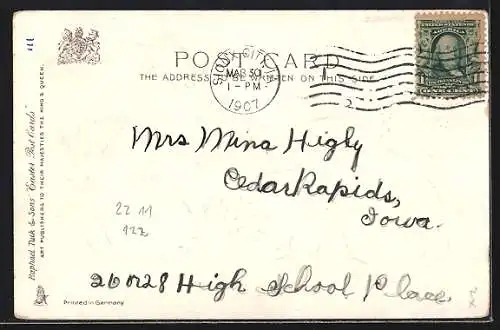 POST CARD
THE ADDRESS TO BE WRITTEN ON THIS SIDE
SIOUX CITY, IA.
MAR 30
1-PM
1907
2
ONE CENT
Raphael Tuck & Sons' "Easter" Post Cards"
ART PUBLISHERS TO THEIR MAJESTIES THE KING & QUEEN.
Mrs Mina Higby
Cedar Rapids,
Iowa.
22 11
122
High School Place
Printed in Germany